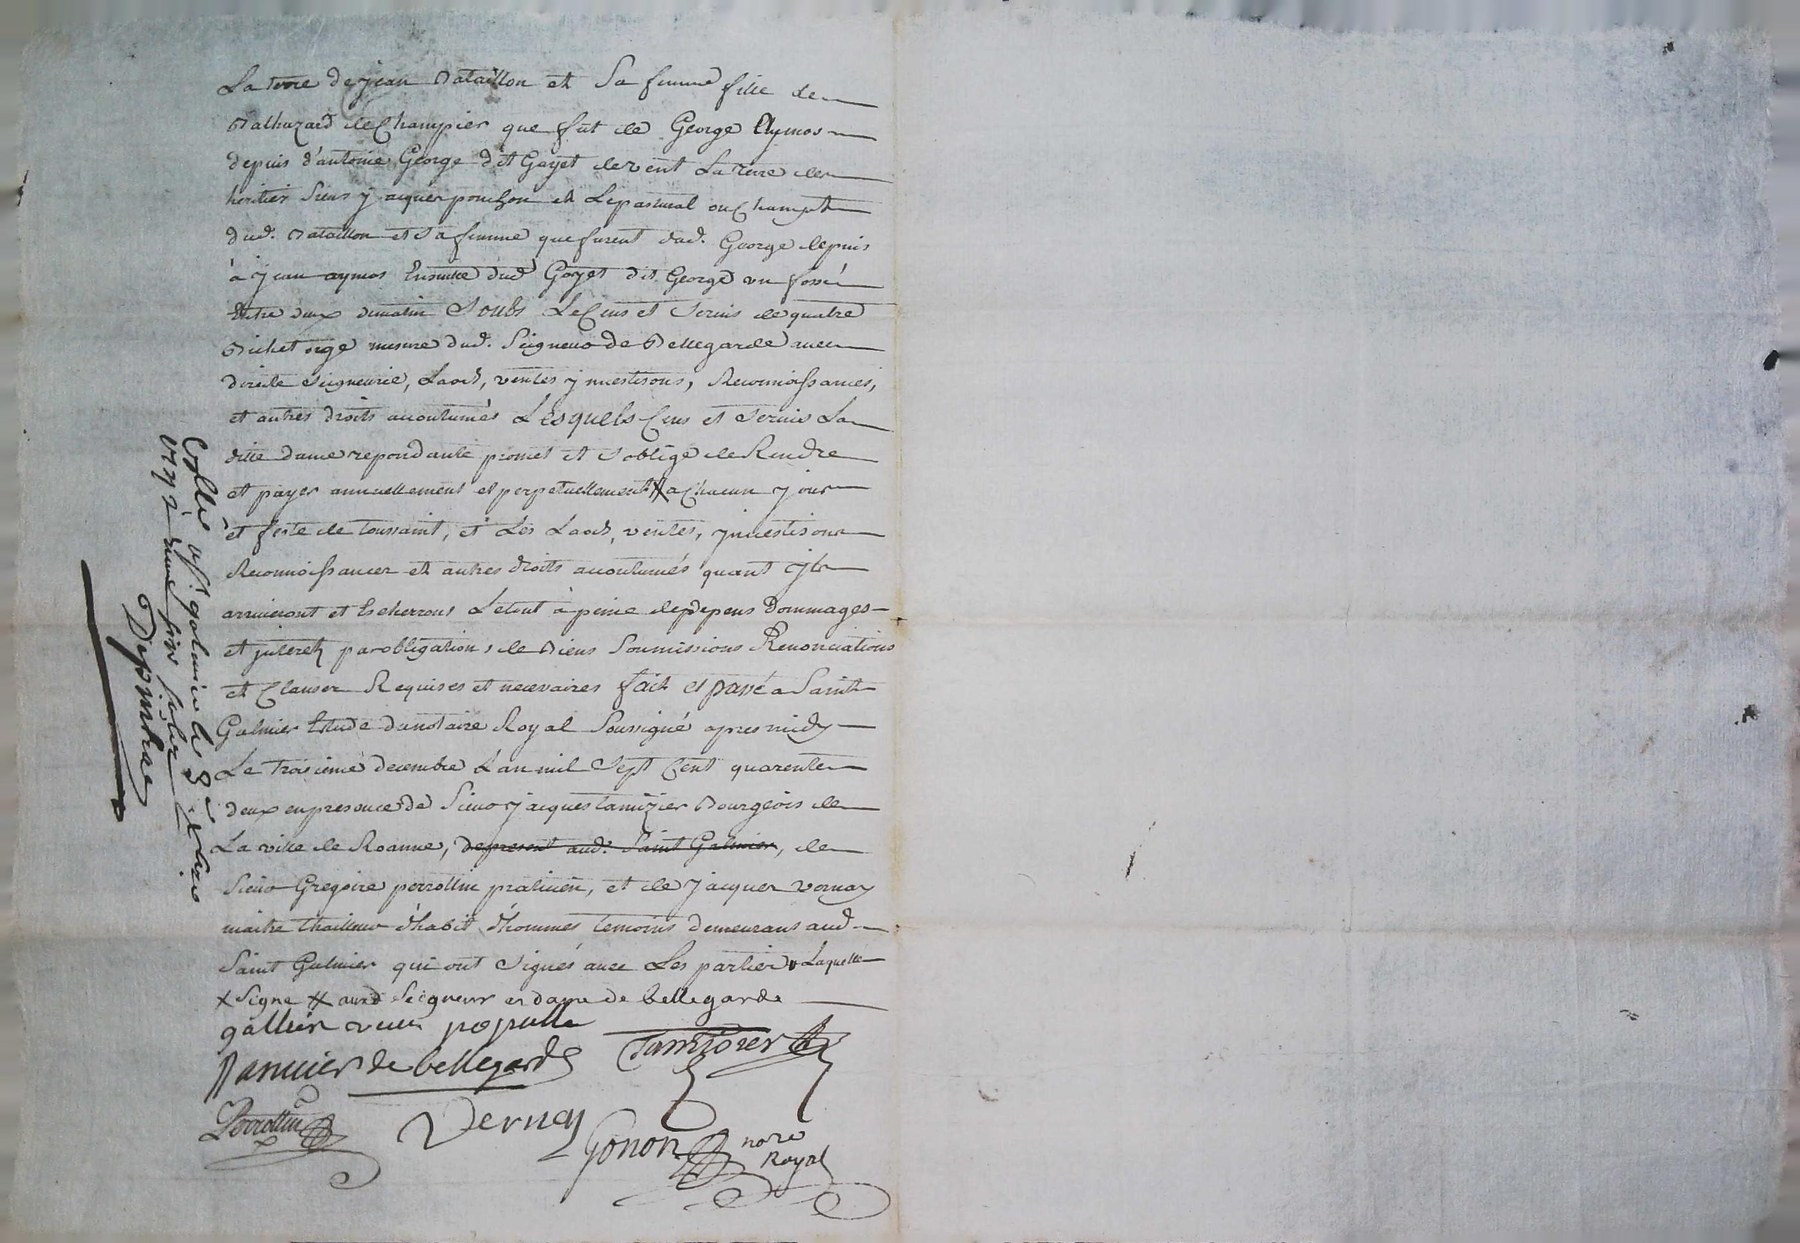 La terre de jean Bataillon et Sa femme fille de
Balthazard de Champier que fut de George Aymos
depuis d'antoine George dit Gayet de vent La terre des
heritier Sieur jacques ponchon et Le pasural ou Champt
dud. Bataillon et Sa femme que furent dud. George depuis
à jean aymos Ensuite dud Gayet dit George un fossé
Entre deux dematin Soubs Le Cens et Servis de quatre
Bichet orge mesure dud. Seigneur de Bellegarde avec
directe Seigneurie, Laods, ventes, investisons, Reconnoissances,
et autres droits accoutumés Lesquels Cens et Servis La
ditte dame repondante promet et s'oblige de Rendre
et payer annuellement et perpetuellement # a Chacun jour
et feste de toussaint, et Les Laods, ventes, investisons
Reconnoissances et autres droits accoutumés quant ils
arriveront et Escherront Letout à peine de depens Dommages
et interetz par obligations de Biens Soumissions Renonciations
et Clauses Requises et necessaires fait et passé a Saint
Galmier Etude du notaire Royal Soussigné apres midy
Le troisieme decembre L'an mil Sept Cent quarente
deux en presence de Sieur jacques tamizier Bourgeois de
La ville de Roanne, de present aud. Saint Galmier, de
Sieur Gregoire perrottin praticien, et de jacques vernay
maitre thailleur d'habit d'hommes temoins demeurans aud.
Saint Galmier qui ont Signés avec Les parties Laquelle
x Signe # aud Seigneur et dame de bellegarde
gallien veuve
de bellegarde
Tamizier
Perrottin
Vernay
Gonon nore
Royal
Collé a St galmier le 8e